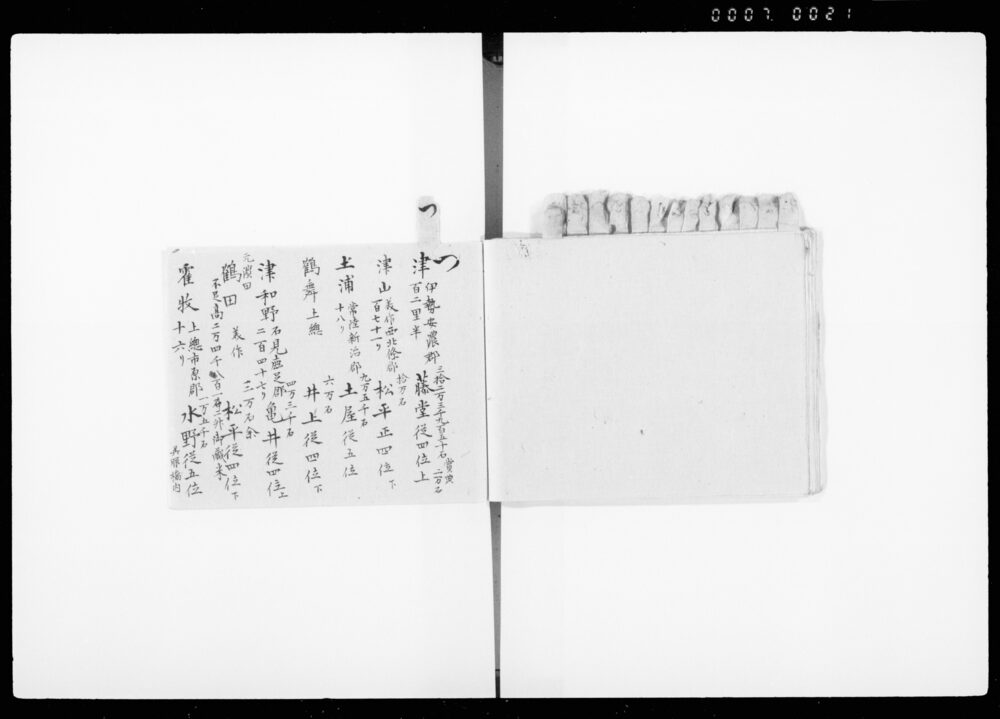 0007 0021
つ
つ
津 伊勢安濃郡 百二里半 三拾二万三千九百五十石 藤堂従四位上 賞典 二万石
津山 美作西北條郡 百七十一り 拾万石 松平正四位下
土浦 常陸新治郡 十八り 九万五千石 土屋従五位
鶴舞 上總 六万石 井上従四位下
津和野 石見鹿足郡 二百四十七り 四万三千石 亀井従四位上
元濵田
鶴田 美作 十三万石余 松平従四位下
不足高二万四千八百 外御蔵米
霍牧 上總市原郡 十六り 一万五千石 水野従五位
呉服橋内